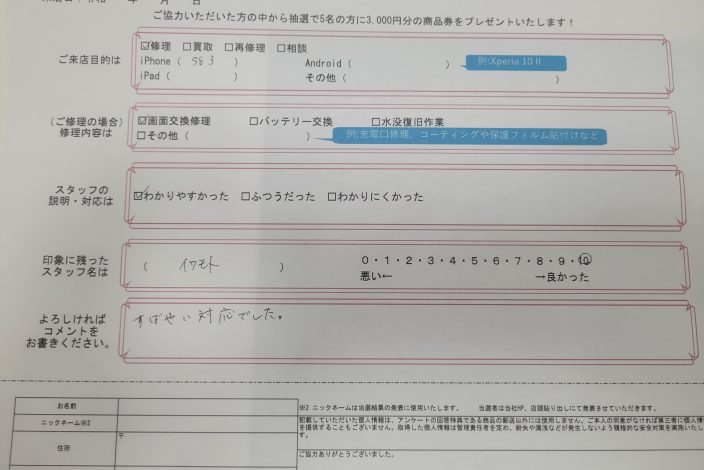 ご協力いただいた方の中から抽選で5名の方に3,000円分の商品券をプレゼントいたします！
ご来店目的は
☑修理 □買取 □再修理 □相談
iPhone（ SE3 ） Android（ ） 例:Xperia 10 II
iPad（ ） その他（ ）
（ご修理の場合）
修理内容は
☑画面交換修理 □バッテリー交換 □水没復旧作業
□その他（ ） 例:充電口修理、コーティングや保護フィルム貼付けなど
スタッフの
説明・対応は
☑わかりやすかった □ふつうだった □わかりにくかった
印象に残った
スタッフ名は
（ イワモト ）
0・1・2・3・4・5・6・7・8・9・10
悪い← →良かった
よろしければ
コメントを
お書きください。
すばやい対応でした。
お名前
ニックネーム※2
住所
〒
※2 ニックネームは当選結果の発表に使用いたします。 当選者は当社HP、店頭貼り出しにて発表させていただきます。
記載していただいた個人情報は、アンケートの回答特典である商品の郵送以外には使用しません。ご本人の同意がなければ第三者に個人情
を提供することもございません。取得した個人情報は管理責任者を定め、紛失や漏洩などが発生しないよう積極的な安全対策を実施いたし
す。
ご協力ありがとうございました。